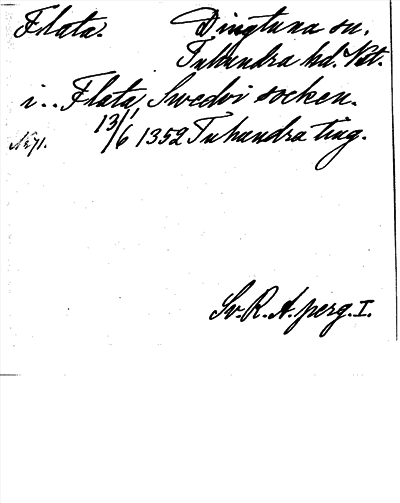 Flata. Dingtuna sn.
Tuhundra hd. Vst.
i.. Flata, Swedvi socken.
N:r 71. 13/6 1352 Tuhundra ting.
Sv. R. A. perg. I.